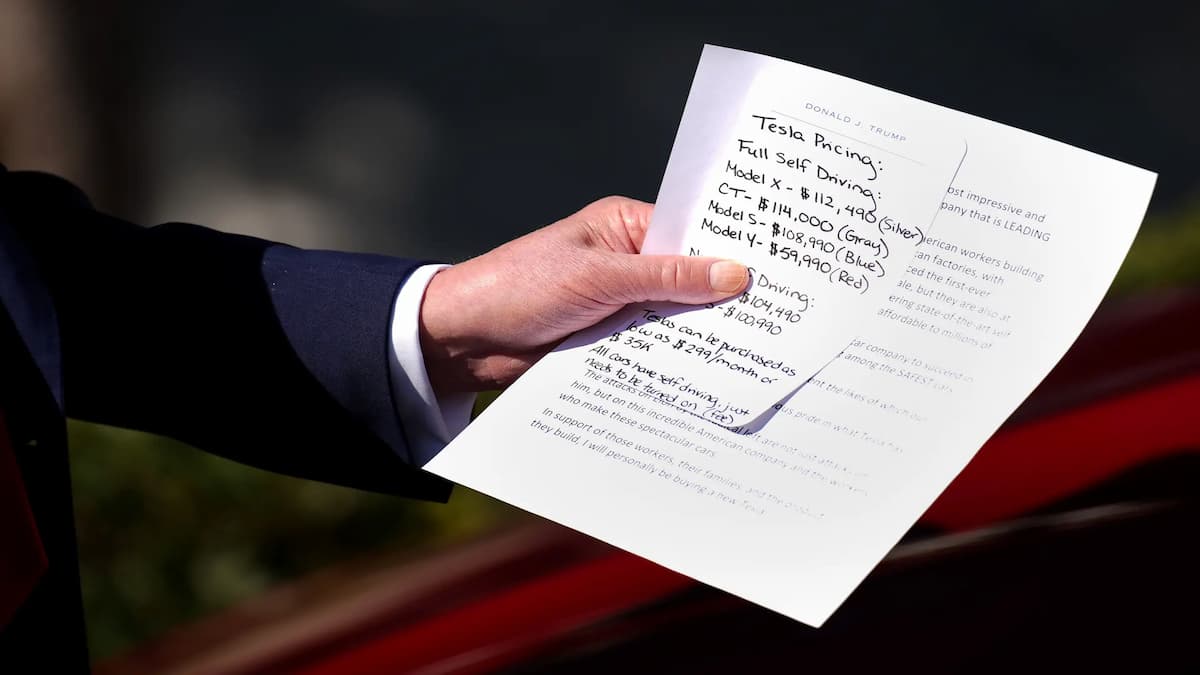 DONALD J. TRUMP
Tesla Pricing:
Full Self Driving:
Model X - $112,490 (Silver)
CT - $114,000 (Gray)
Model S - $108,990 (Blue)
Model Y - $59,990 (Red)
Driving:
$104,490
- $100,990
Teslas can be purchased as
low as $299/month or
$35K
All cars have self driving, just
needs to be turned on (fee)
ost impressive and
pany that is LEADING
erican workers building
can factories, with
ced the first-ever
ale, but they are also at
ering state-of-the-art self
affordable to millions of
ar company to succeed in
among the SAFEST cars
nt the likes of which our
us pride in what Tesla has
The attacks on left are not just attacks on
him, but on this incredible American company and the workers
who make these spectacular cars.
In support of those workers, their families, and the product
they build, I will personally be buying a new Tesla